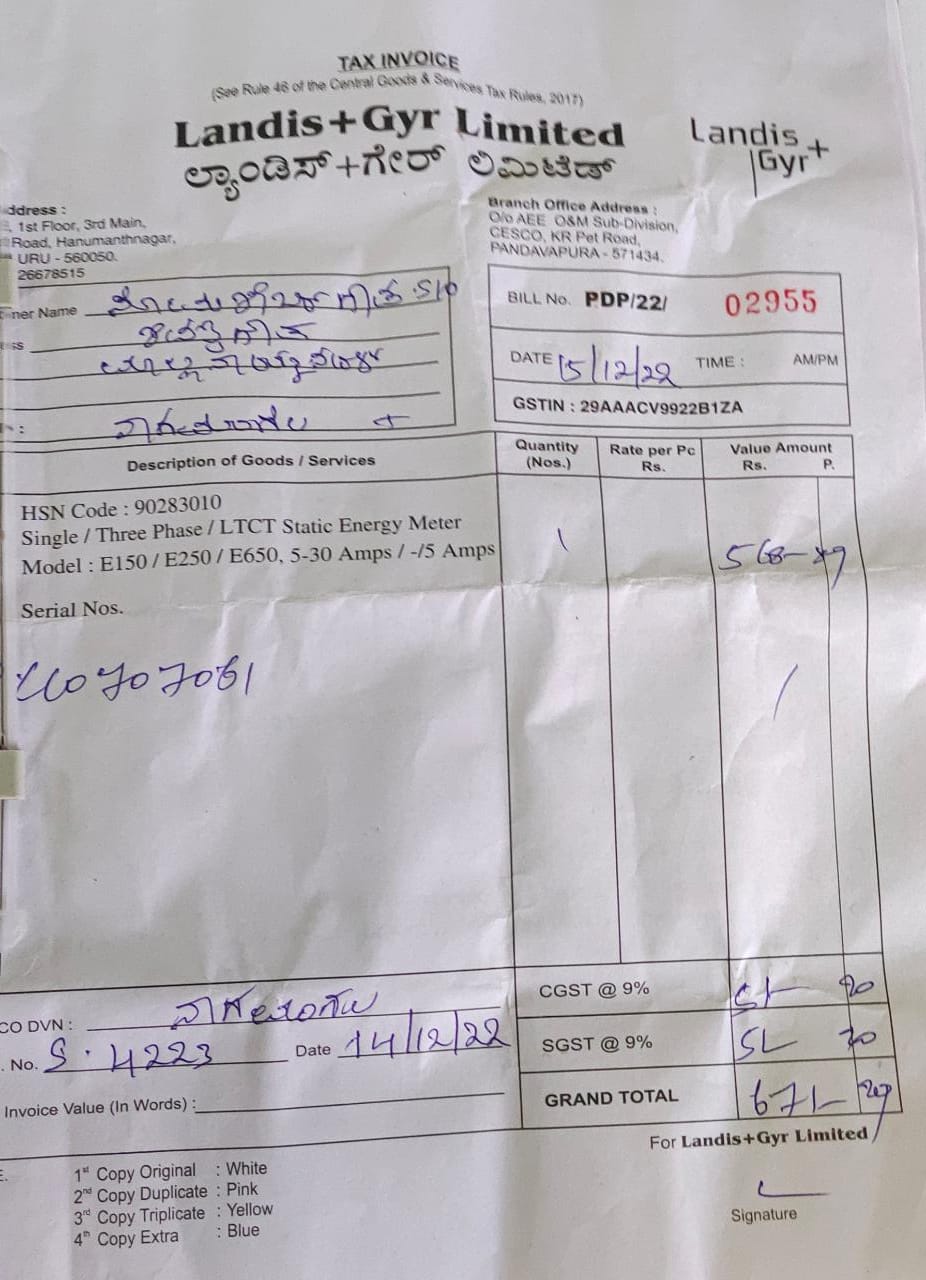 TAX INVOICE
(See Rule 46 of the Central Goods & Services Tax Rules, 2017)
Landis+Gyr Limited
ಲ್ಯಾಂಡಿಸ್+ಗೇರ್ ಲಿಮಿಟೆಡ್
Landis
Gyr+
ddress :
1st Floor, 3rd Main,
Road, Hanumanthnagar,
URU - 560050.
26678515
Branch Office Address :
O/o AEE O&M Sub-Division,
CESCO, KR Pet Road,
PANDAVAPURA - 571434.
ner Name S/o
ss
BILL No. PDP/22/ 02955
DATE 15/12/22 TIME : AM/PM
GSTIN : 29AAACV9922B1ZA
Description of Goods / Services
Quantity (Nos.)
Rate per Pc Rs.
Value Amount Rs. P.
HSN Code : 90283010
Single / Three Phase / LTCT Static Energy Meter
Model : E150 / E250 / E650, 5-30 Amps / -/5 Amps
1
Serial Nos.
CO DVN :
. No. S. 4223 Date 14/12/22
Invoice Value (In Words) :
CGST @ 9%
SGST @ 9%
GRAND TOTAL 671
For Landis+Gyr Limited
E.
1st Copy Original : White
2nd Copy Duplicate : Pink
3rd Copy Triplicate : Yellow
4th Copy Extra : Blue
Signature